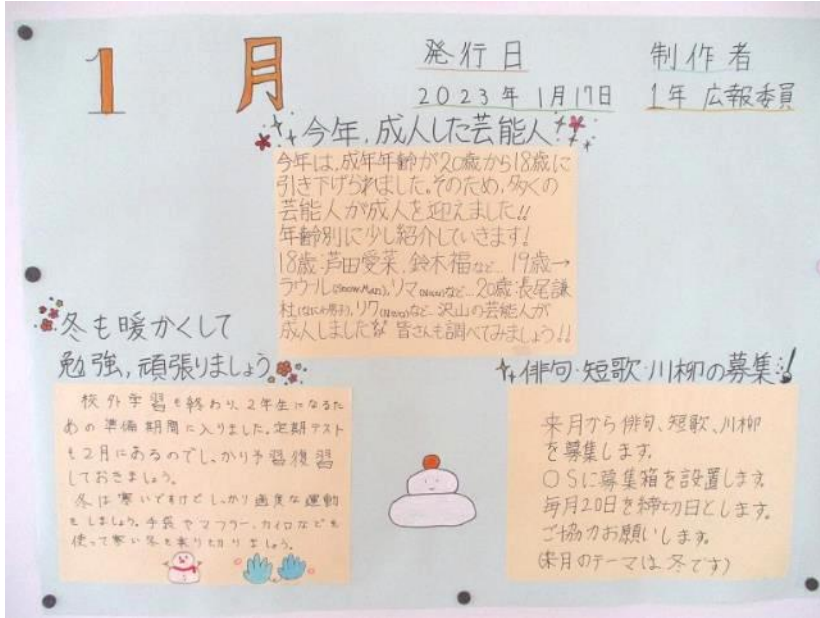 1月
発行日
2023年1月17日
制作者
1年 広報委員
今年,成人した芸能人
今年は,成年年齢が20歳から18歳に
引き下げられました。そのため,多くの
芸能人が成人を迎えました!!
年齢別に少し紹介していきます!
18歳・芦田愛菜,鈴木福など… 19歳→
ラウール(Snow Man),リマ(NiziU)など…20歳・長尾謙
杜(なにわ男子),リク(NiziU)など…沢山の芸能人が
成人しましたね 皆さんも調べてみましょう!!
冬も暖かくして
勉強,頑張りましょう
校外学習も終わり、2年生になるた
めの準備期間に入りました。定期テスト
も2月にあるのでしっかり予習復習
しておきましょう。
冬は寒いですけどしっかり適度な運動
をしましょう。手袋やマフラー、カイロなどを
使って寒い冬を乗り切りましょう。
俳句・短歌・川柳の募集
来月から俳句、短歌、川柳
を募集します。
OSに募集箱を設置します。
毎月20日を締切日とします。
ご協力お願いします。
(来月のテーマは冬です)